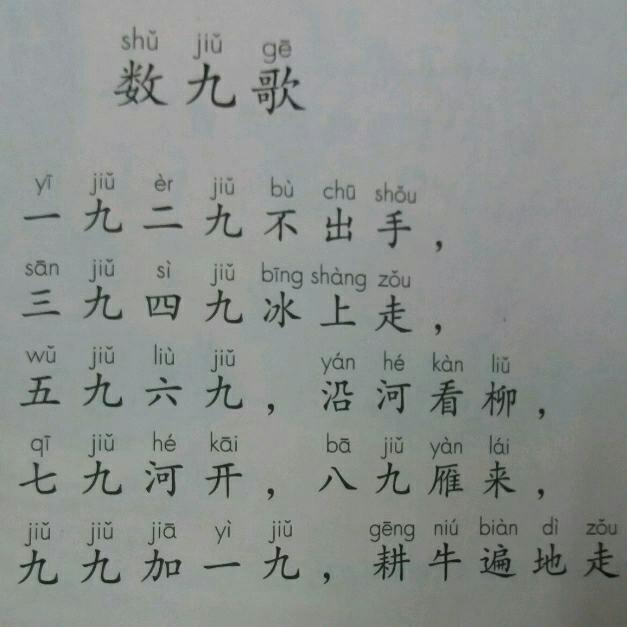 shǔ jiǔ gē
数九歌
yī jiǔ èr jiǔ bù chū shǒu
一九二九不出手，
sān jiǔ sì jiǔ bīng shàng zǒu
三九四九冰上走，
wǔ jiǔ liù jiǔ yán hé kàn liǔ
五九六九，沿河看柳，
qī jiǔ hé kāi bā jiǔ yàn lái
七九河开，八九雁来，
jiǔ jiǔ jiā yì jiǔ gēng niú biàn dì zǒu
九九加一九，耕牛遍地走